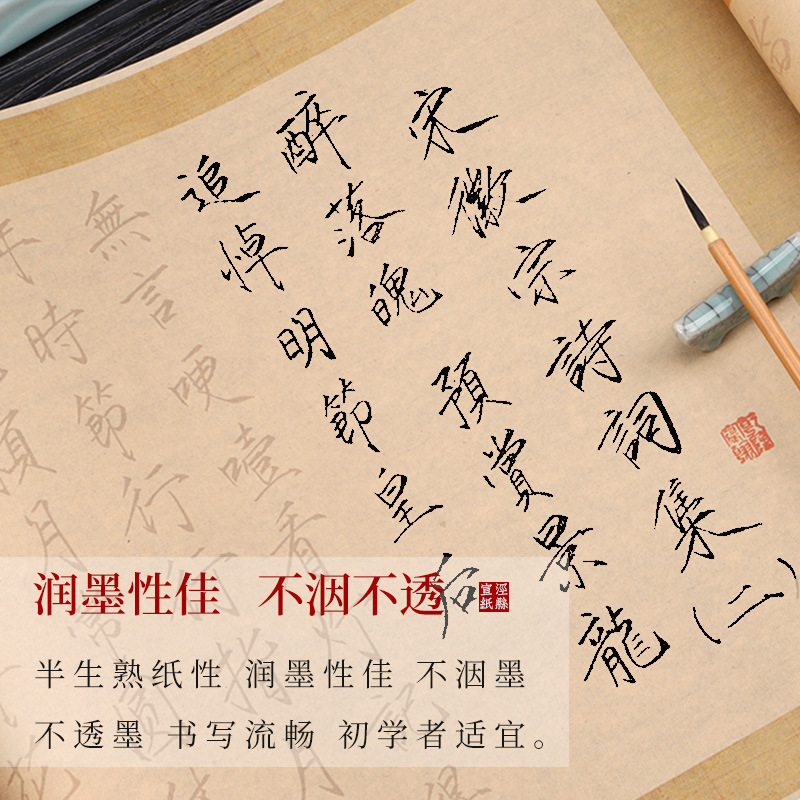 宋徽宗詩詞集(二)
醉落魄 預賞景龍
追悼明節皇后
無言哽噎看
時節行行指月
月常圓
润墨性佳 不洇不透
涇縣
宣紙
半生熟纸性 润墨性佳 不洇墨
不透墨 书写流畅 初学者适宜。